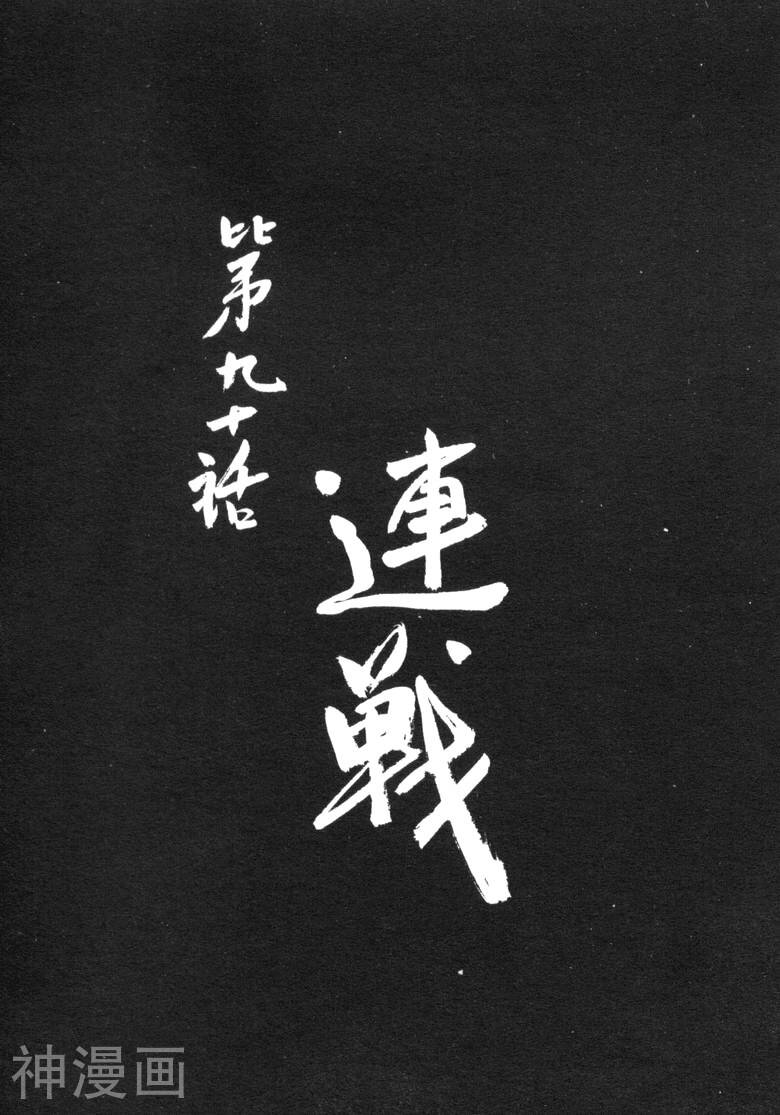 第九十話
連戰
神漫画